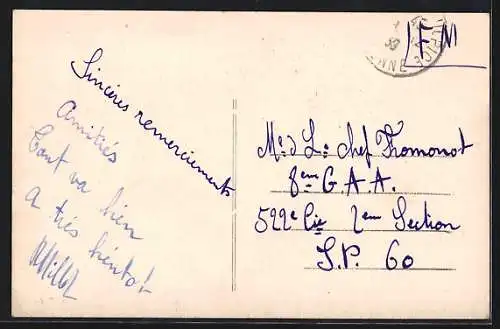 Sincères remerciements
Amitiés
Tout va bien
A très bientôt
F M
Mr d L. chef Fromonot
8ème G.A.A.
522e Cie 2em Section
S.P. 60